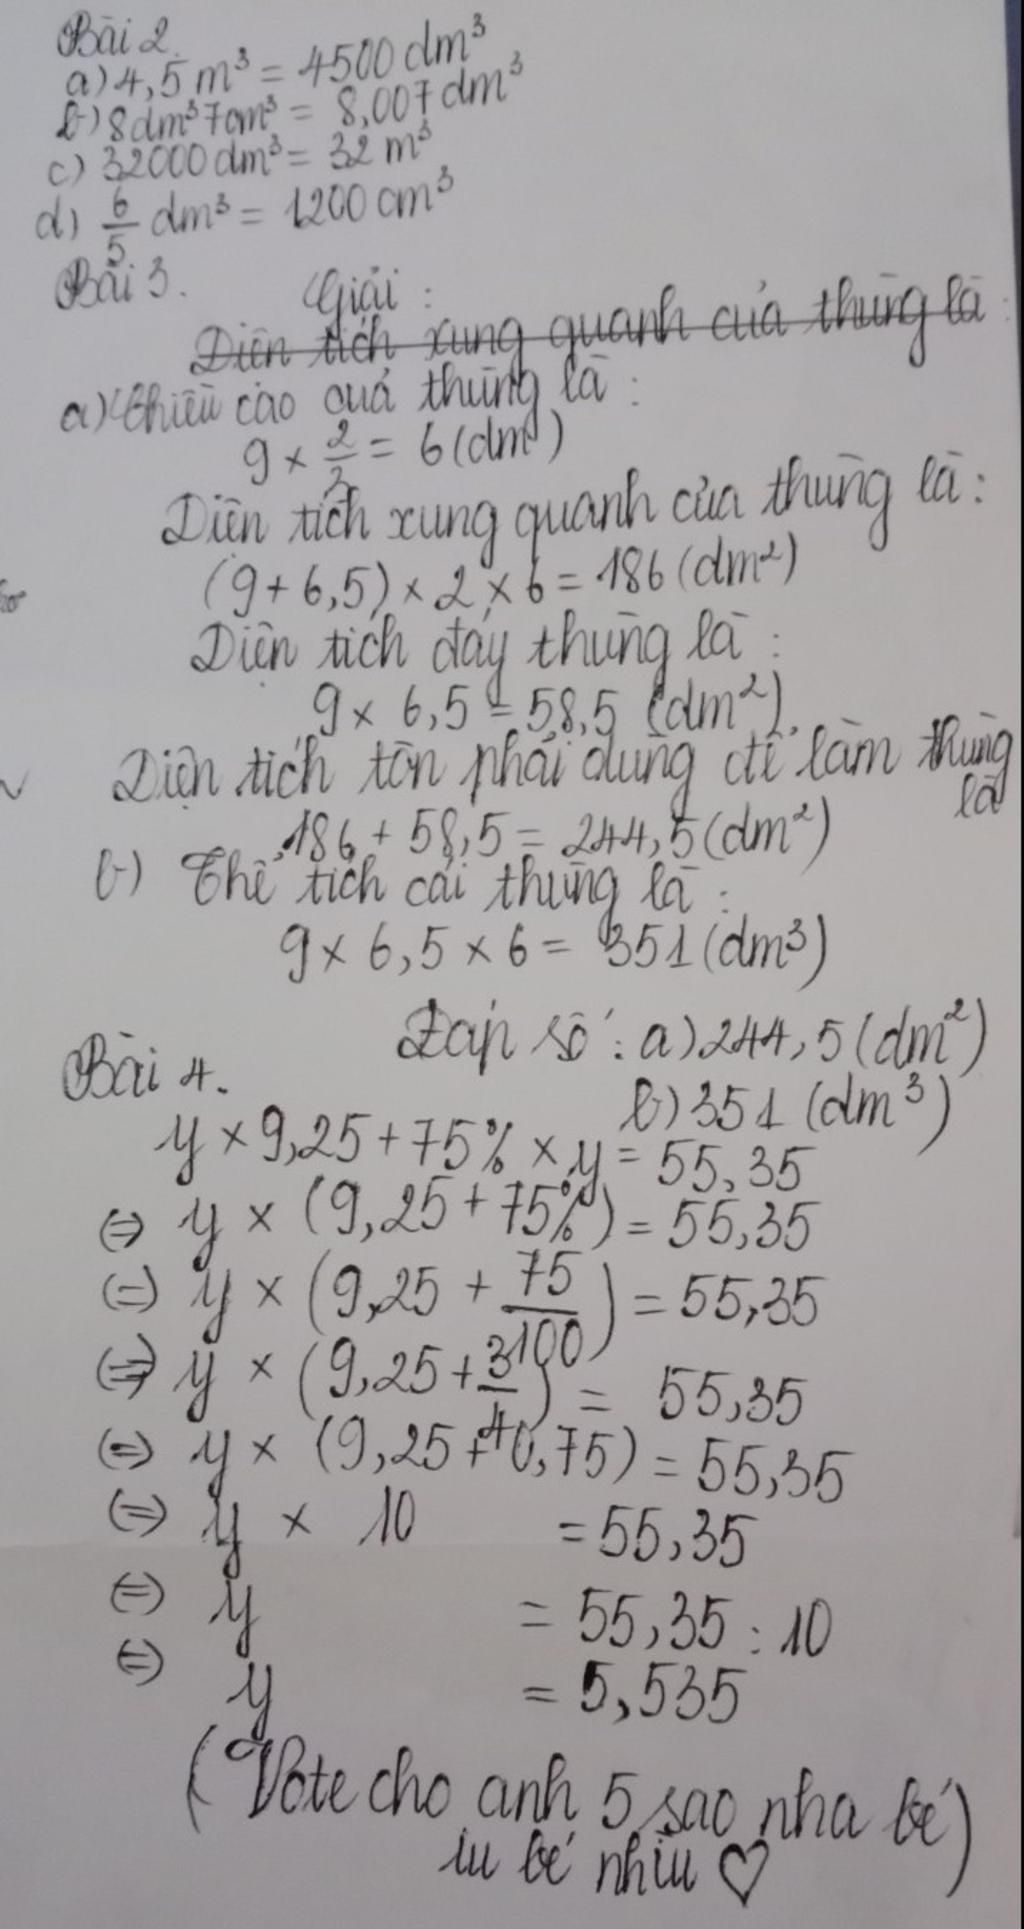 Bài 2.
a) 4,5 m³ = 4500 dm³
b) 8dm³ 7cm³ = 8,007 dm³
c) 32000 dm³ = 32 m³
d) 6/5 dm³ = 1200 cm³
Bài 3. Giải :
Diện tích xung quanh của thùng là :
a) Chiều cao cuả thùng là :
9 × 2/3 = 6 (dm)
Diện tích xung quanh của thùng là :
(9 + 6,5) × 2 × 6 = 186 (dm²)
Diện tích đáy thùng là :
9 × 6,5 = 58,5 (dm²)
Diện tích tôn phải dùng để làm thùng
là
186 + 58,5 = 244,5 (dm²)
b) Thể tích cái thùng là :
9 × 6,5 × 6 = 351 (dm³)
Đáp số : a) 244,5 (dm²)
b) 351 (dm³)
Bài 4.
y × 9,25 + 75% × y = 55,35
(=) y × (9,25 + 75%) = 55,35
(=) y × (9,25 + 75/100) = 55,35
(=) y × (9,25 + 3/4) = 55,35
(=) y × (9,25 + 0,75) = 55,35
(=) y × 10 = 55,35
(=) y = 55,35 : 10
(=) y = 5,535
(Vote cho anh 5 sao nha bé)
iu bé nhìu ♡